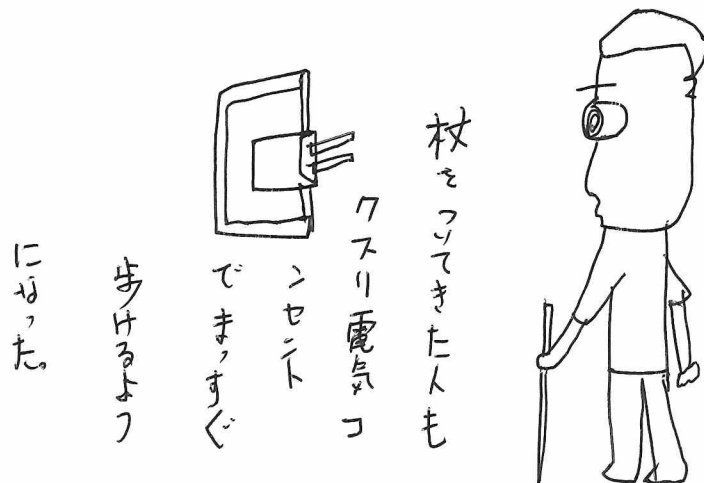 杖をついてきた人も
クスリ電気コ
ンセント
でまっすぐ
歩けるよう
になった。